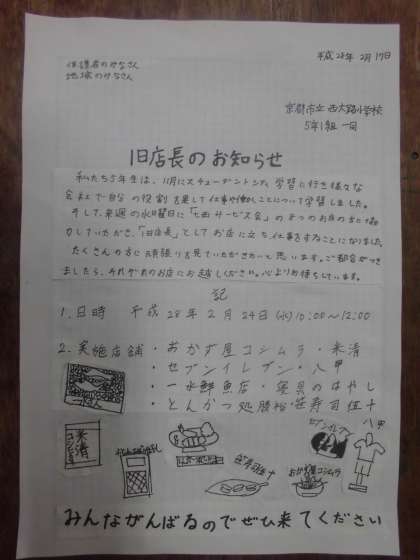 保護者のみなさん
地域のみなさん
平成28年 2月 17日
京都市立 西大路小学校
5年1組 一同
1日店長のお知らせ
私たち5年生は、11月にスチューデントシティ学習に行き様々な
会社で自分の役割を果して仕事や働くことについて学習しました。
そして、来週の水曜日に「七西サービス会」の8つのお店の方に協
力していただき、「1日店長」としてお店に立ち仕事をすることになりました。
たくさんの方に頑張りを見ていただきたいと思います。ご都合がつき
ましたら、それぞれのお店にお越しください。心よりお待ちしています。
記
1.日時 平成 28年 2月 24日 (水) 10:00〜12:00
2.実施店舗・おかず屋コシムラ・米清
・セブンイレブン・八甲
・一水鮮魚店・寝具のはやし
・とんかつ処勝裕・笹寿司伍十
米清
笹寿司伍十
セブンイレブン
おかず屋コシムラ
八甲
みんながんばるのでぜひ来てください